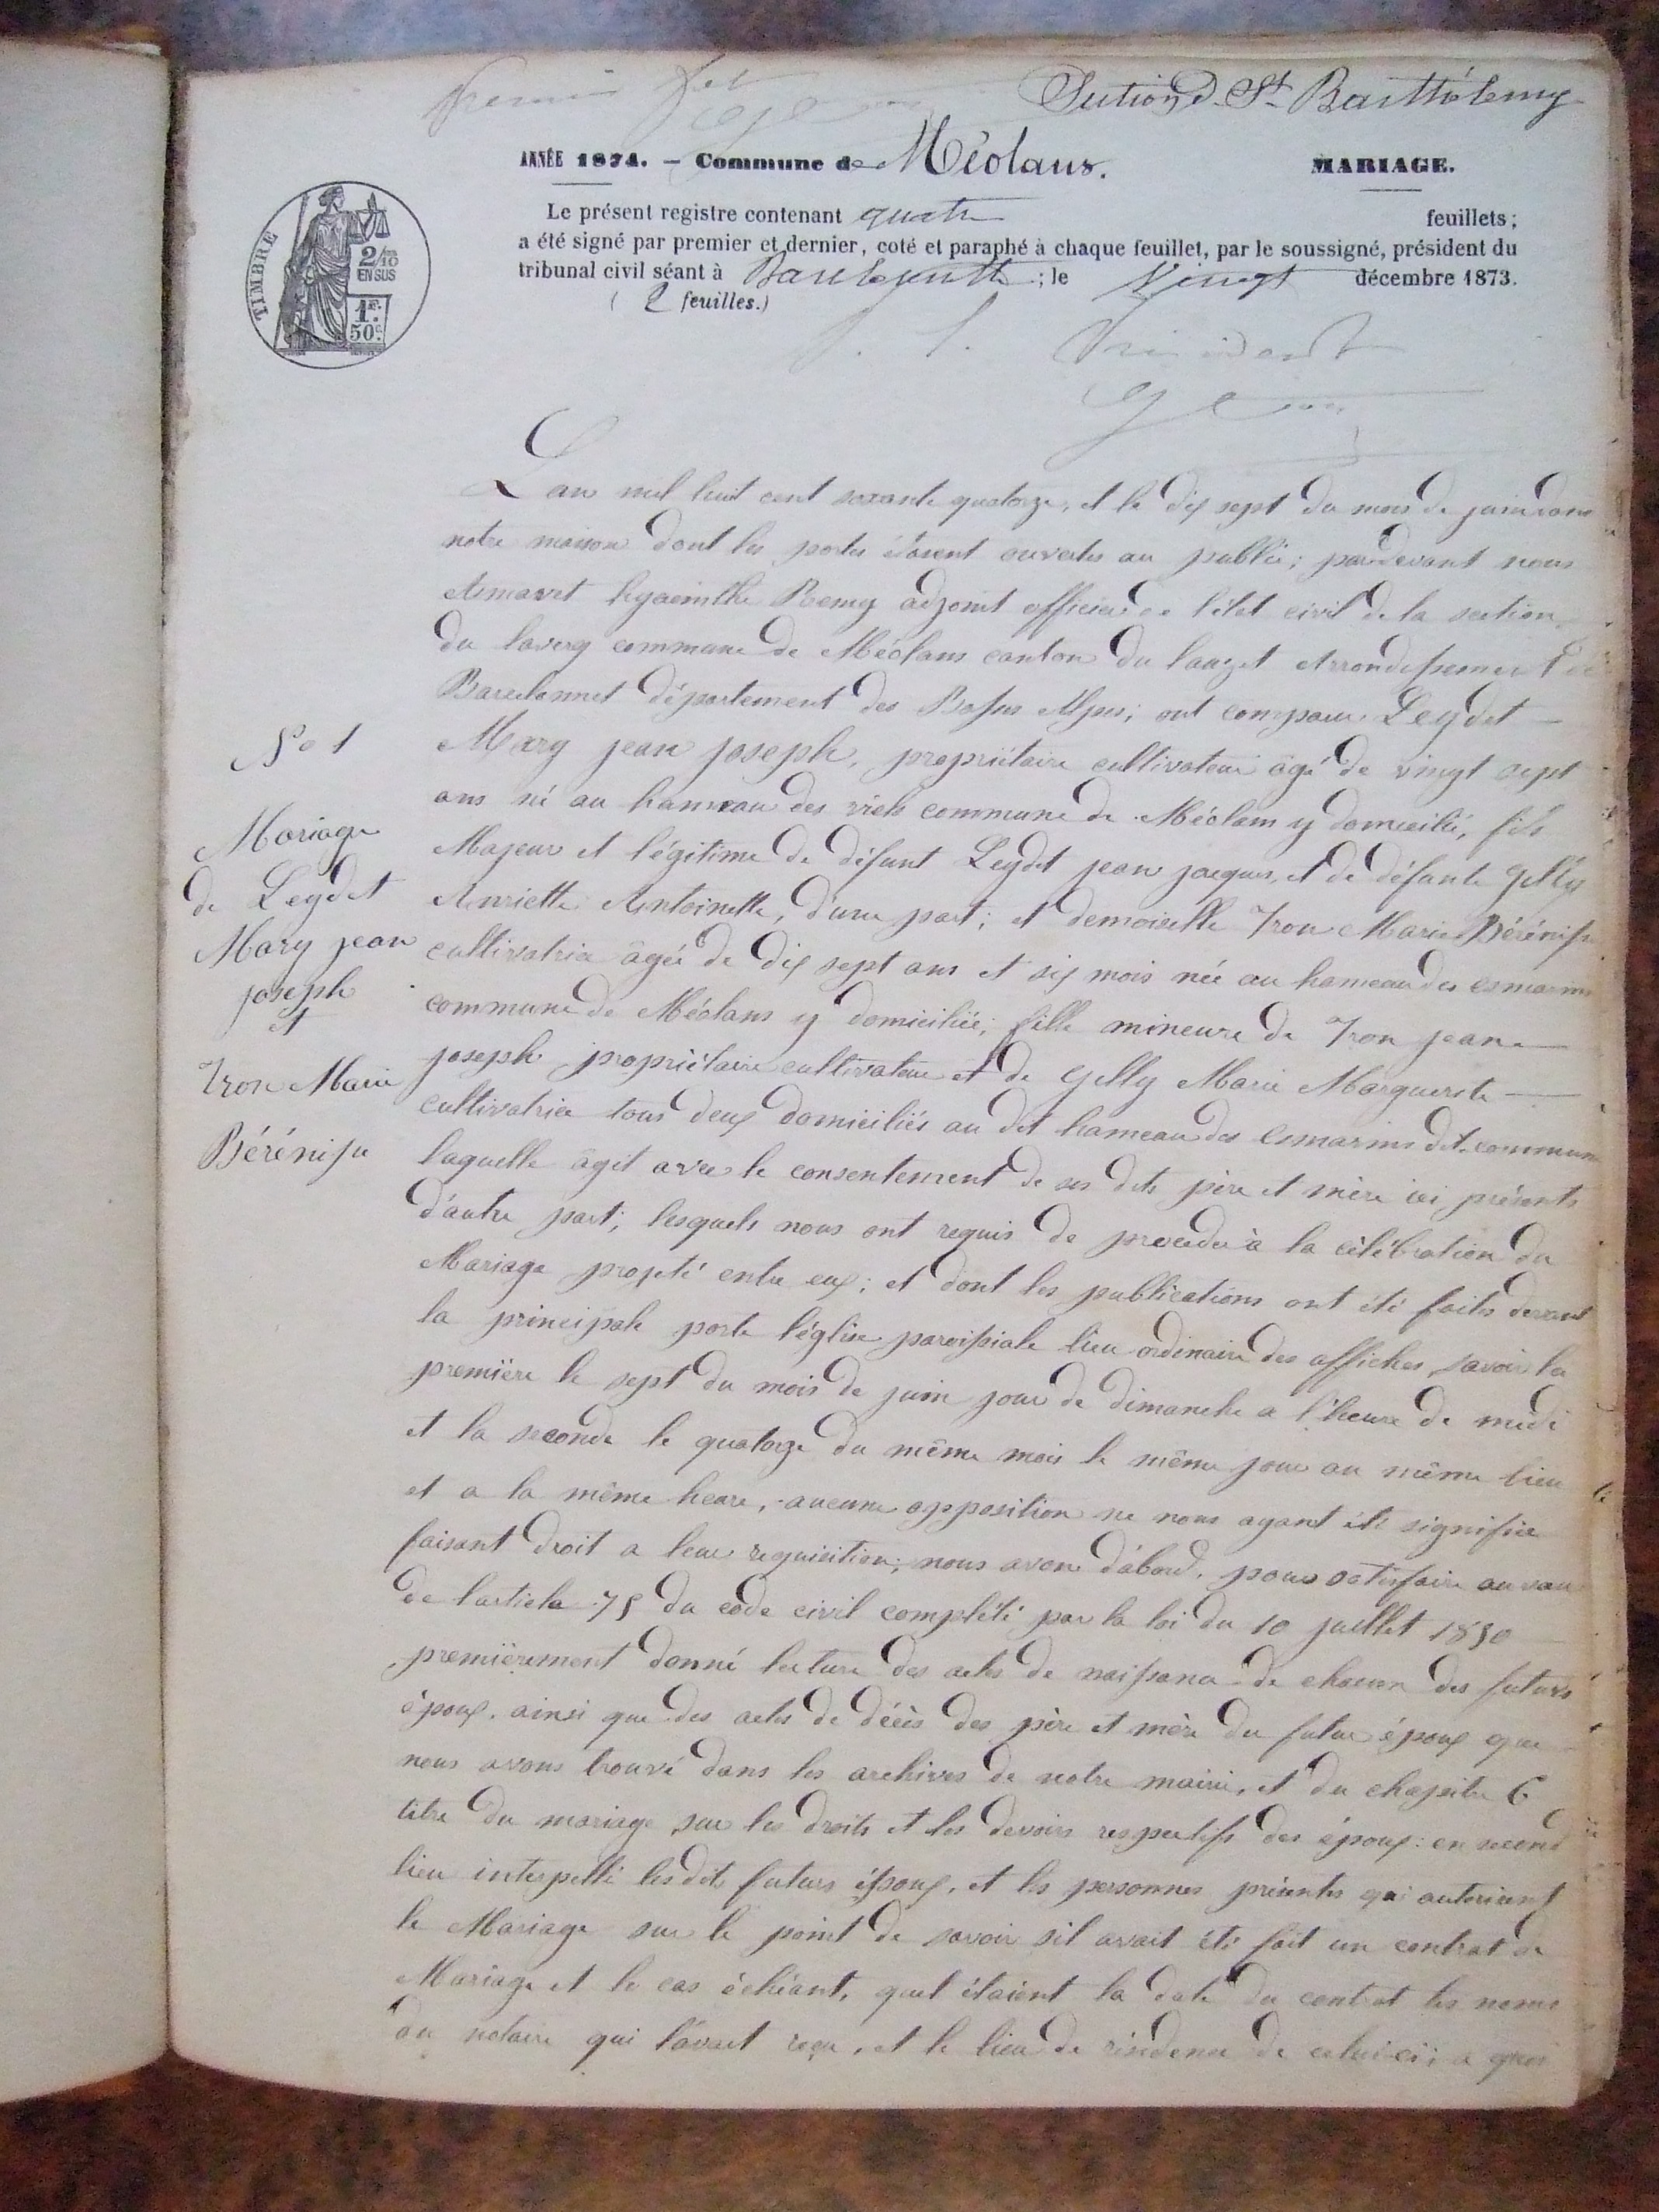 Premier f^et
Section d. St Barthélemy
ANNÉE 1874. — Commune de Méolans. MARIAGE.
Le présent registre contenant quatre feuillets;
a été signé par premier et dernier, coté et paraphé à chaque feuillet, par le soussigné, président du
tribunal civil séant à Barcelonnette ; le Vingt décembre 1873.
( 2 feuilles.)
TIMBRE
2/10 EN SUS
1F. 50c.
Président
L'an mil huit cent soixante quatorze, et le dix sept du mois de juin dans
notre maison dont les portes étaient ouvertes au public; pardevant nous
hyacinthe Remy adjoint officier de l'état civil de la section
du laverq commune de Méolans canton du lauzet arrondissement de
Barcelonnet département des Basses Alpes; ont comparu Leydet
Mary jean joseph, propriétaire cultivateur âgé de vingt sept
ans né au hameau des commune de Méolans y domicilié, fils
Majeur et légitime de défunt Leydet jean jacques, et de défunte gilly
Anriette Antoinette, d'une part; et demoiselle Tron Marie Bérénisse
cultivatrice âgée de dix sept ans et six mois née au hameau des esmarins
commune de Méolans y domiciliée; fille mineure de Tron jean
joseph propriétaire cultivateur et de gilly Marie Marguerite
cultivatrice tous deux domiciliés au dit hameau des esmarins dt. commune
laquelle âgit avec le consentement de ses dits père et mère ici présents
d'autre part; lesquels nous ont requis de proceder à la célébration du
Mariage projeté entre eux; et dont les publications ont été faites devant
la principale porte l'église paroissiale lieu ordinaire des affiches, savoir la
première le sept du mois de juin jour de dimanche a l'heure de midi
et la seconde le quatorze du même mois le même jour au même lieu
et a la même heure, aucune opposition ne nous ayant été signifiée
faisant droit a leur requisition; nous avons d'abord, pour satisfaire au vœu
de l'article 75 du code civil complété par la loi du 10 juillet 1850
premièrement donné lecture des actes de naissance de chacun des futurs
époux, ainsi que des actes de décès des père et mère du futur époux que
nous avons trouvé dans les archives de notre mairie, et du chapitre 6
titre du mariage sur les droits et les devoirs respectifs des époux: en second
lieu interpellé lesdits futurs époux, et les personnes présentes qui autorisent
le Mariage sur le point de savoir s'il avait été fait un contrat de
Mariage et le cas échéant, quel étaient la date du contrat les noms
du notaire qui l'avait reçu, et le lieu de résidence de celui-ci; a quoi
No 1
Mariage
de Leydet
Mary jean
joseph
et
Tron Marie
Bérénisse